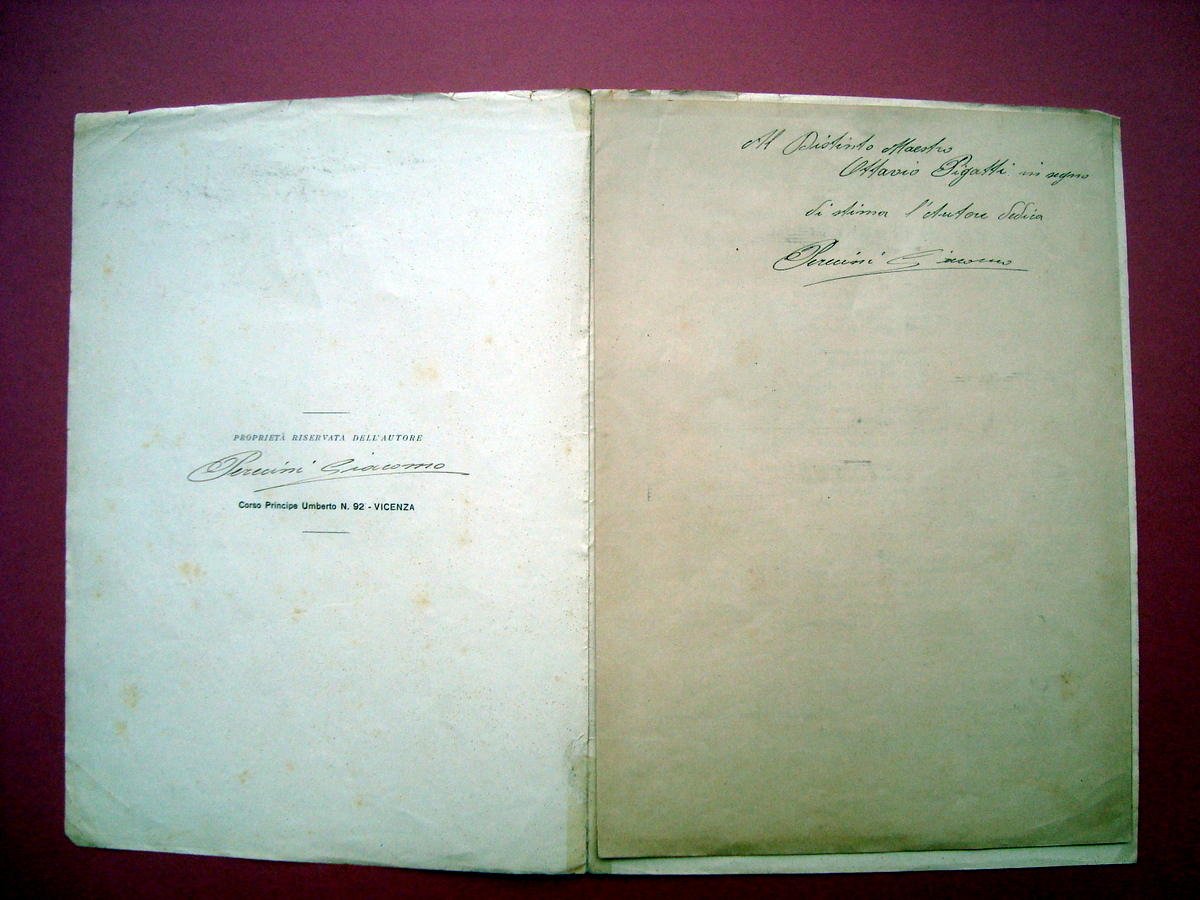 PROPRIETÀ RISERVATA DELL'AUTORE
Pereini Giacomo
Corso Principe Umberto N. 92 - VICENZA
Al Distinto Maestro
Ottavio Pigatti in segno
di stima l'Autore dedica
Pereini Giacomo